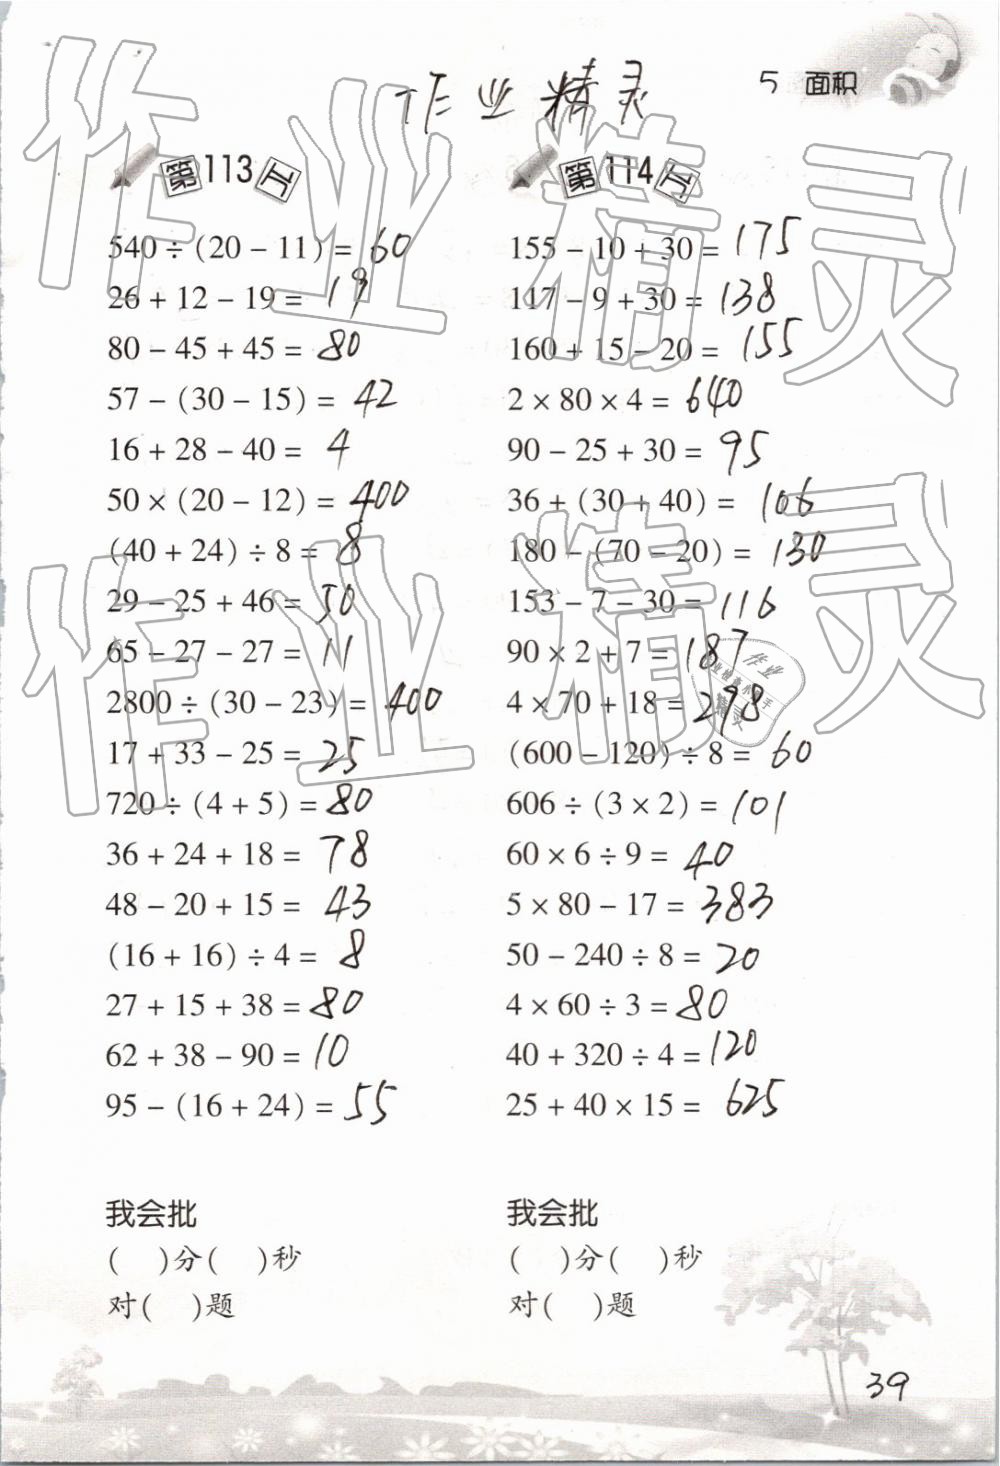 作业精灵
5 面积
第113页
540÷(20-11)=60
26+12-19=19
80-45+45=80
57-(30-15)=42
16+28-40=4
50×(20-12)=400
(40+24)÷8=8
29-25+46=50
65-27-27=11
2800÷(30-23)=400
17+33-25=25
720÷(4+5)=80
36+24+18=78
48-20+15=43
(16+16)÷4=8
27+15+38=80
62+38-90=10
95-(16+24)=55
我会批
( )分( )秒
对( )题
第114页
155-10+30=175
117-9+30=138
160+15-20=155
2×80×4=640
90-25+30=95
36+(30+40)=106
180-(70-20)=130
153-7-30=116
90×2+7=187
4×70+18=298
(600-120)÷8=60
606÷(3×2)=101
60×6÷9=40
5×80-17=383
50-240÷8=20
4×60÷3=80
40+320÷4=120
25+40×15=625
我会批
( )分( )秒
对( )题
39
作业精灵
作业精灵
作业
精灵